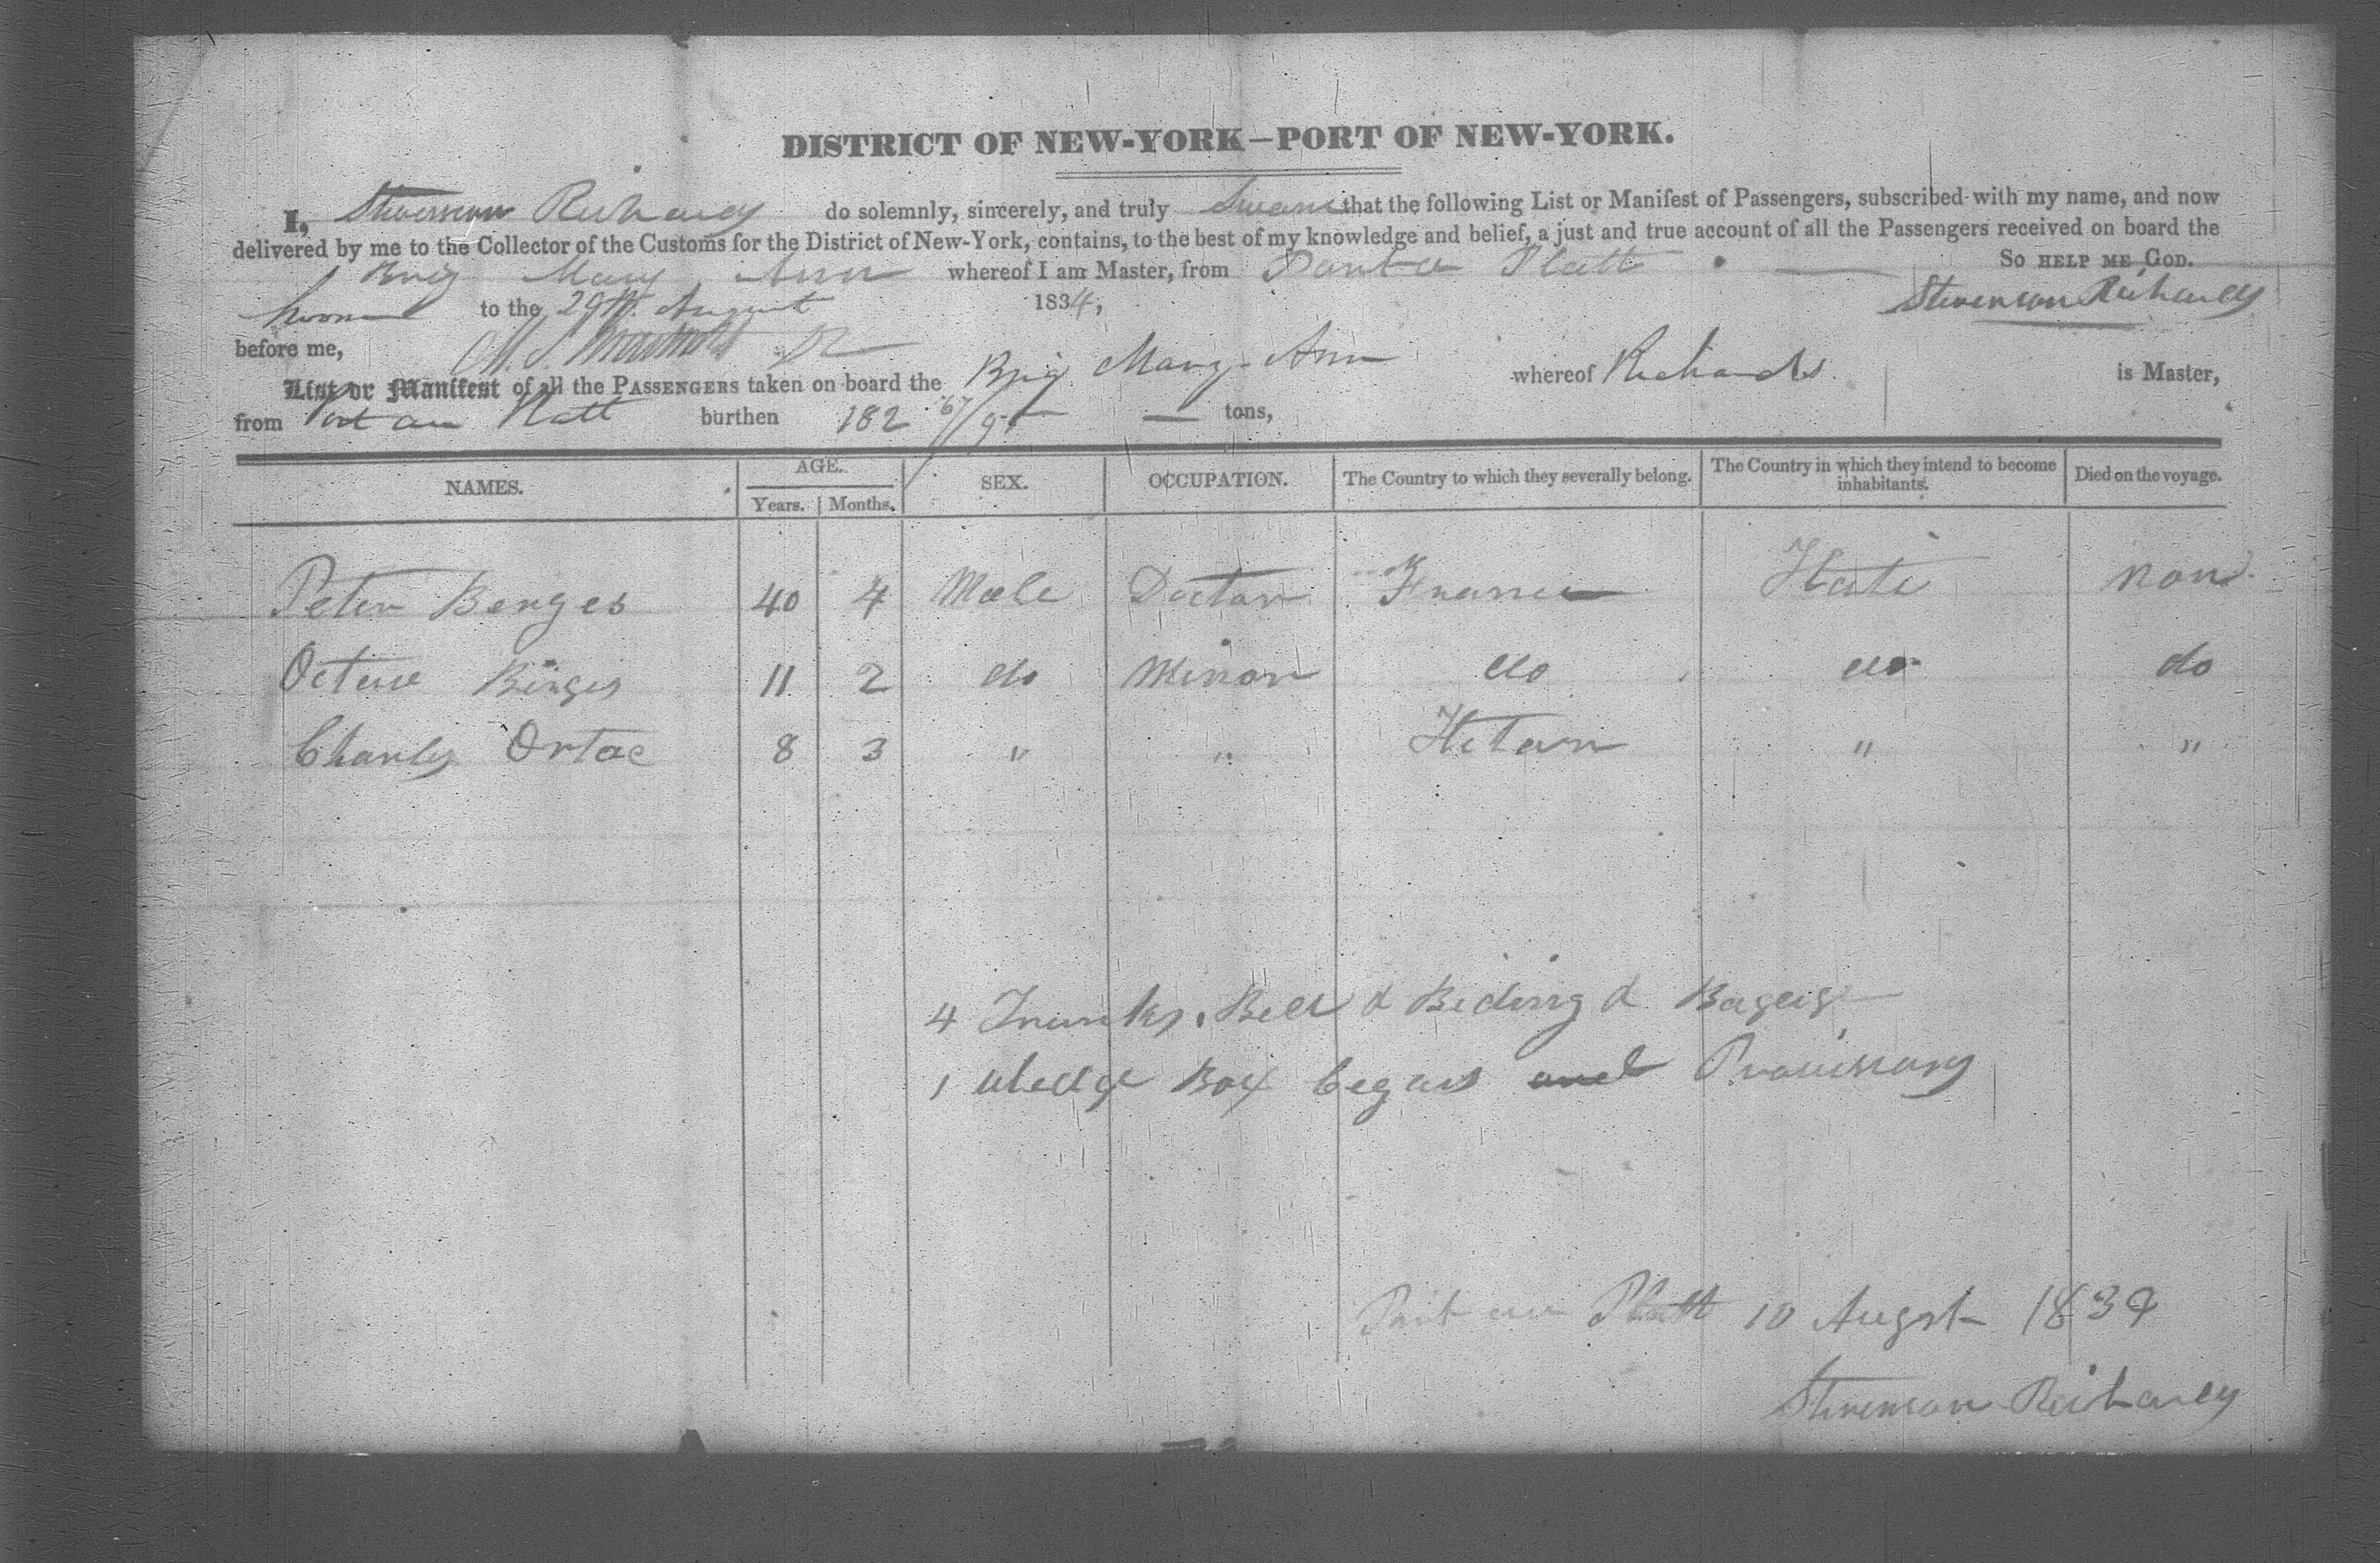 DISTRICT OF NEW-YORK—PORT OF NEW-YORK.
I, Stevenson Richards do solemnly, sincerely, and truly Swear that the following List or Manifest of Passengers, subscribed with my name, and now
delivered by me to the Collector of the Customs for the District of New-York, contains, to the best of my knowledge and belief, a just and true account of all the Passengers received on board the
Brig Mary Ann whereof I am Master, from Platt So HELP ME GOD.
Sworn to the 29th August 1834, Stevenson Richards
before me,
List or Manifest of all the PASSENGERS taken on board the Brig Mary Ann whereof Richards is Master,
from Port au Platt burthen 182 67/95 tons,
NAMES. AGE. Years. Months. SEX. OCCUPATION. The Country to which they severally belong. The Country in which they intend to become inhabitants. Died on the voyage.
Peter Berges 40 4 Male Doctor France Hati non
Octave Birges 11 2 do Minor do do do
Charles Ortae 8 3 " " Hetian " "
4 Trunks, Bed & Beding & Bagage
1 Box Cegars and Provissions
Port au Platt 10 Augst 1834
Stevenson Richards